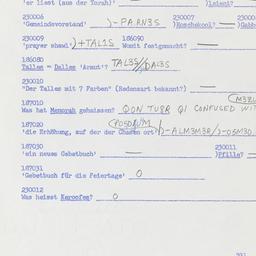 'er liest (aus der Torah)' )leient?
230006 230007 23000
'Gemeindevorstand' )-PARN3S )Koschekool?
230009 186090
'prayer shawl' )+TAL1S Womit festgemacht?
186080
Talles = Dalles 'Armut'? TAL3S//DAL3S
230010
"Der Talles mit 7 Farben" (Redensart bekannt?)
187010
Was hat Menorah geheissen? DON TURR QI CONFUSED WI
187020
'die Erhöhung, auf der der Chasen ort' )-ALM3M3R/)-OSM30
187030 230011
'ein neues Gebetbuch' )Pfille?
187031
'Gebetbuch für die Feiertage' O
230012
Was heisst Keroofes? O